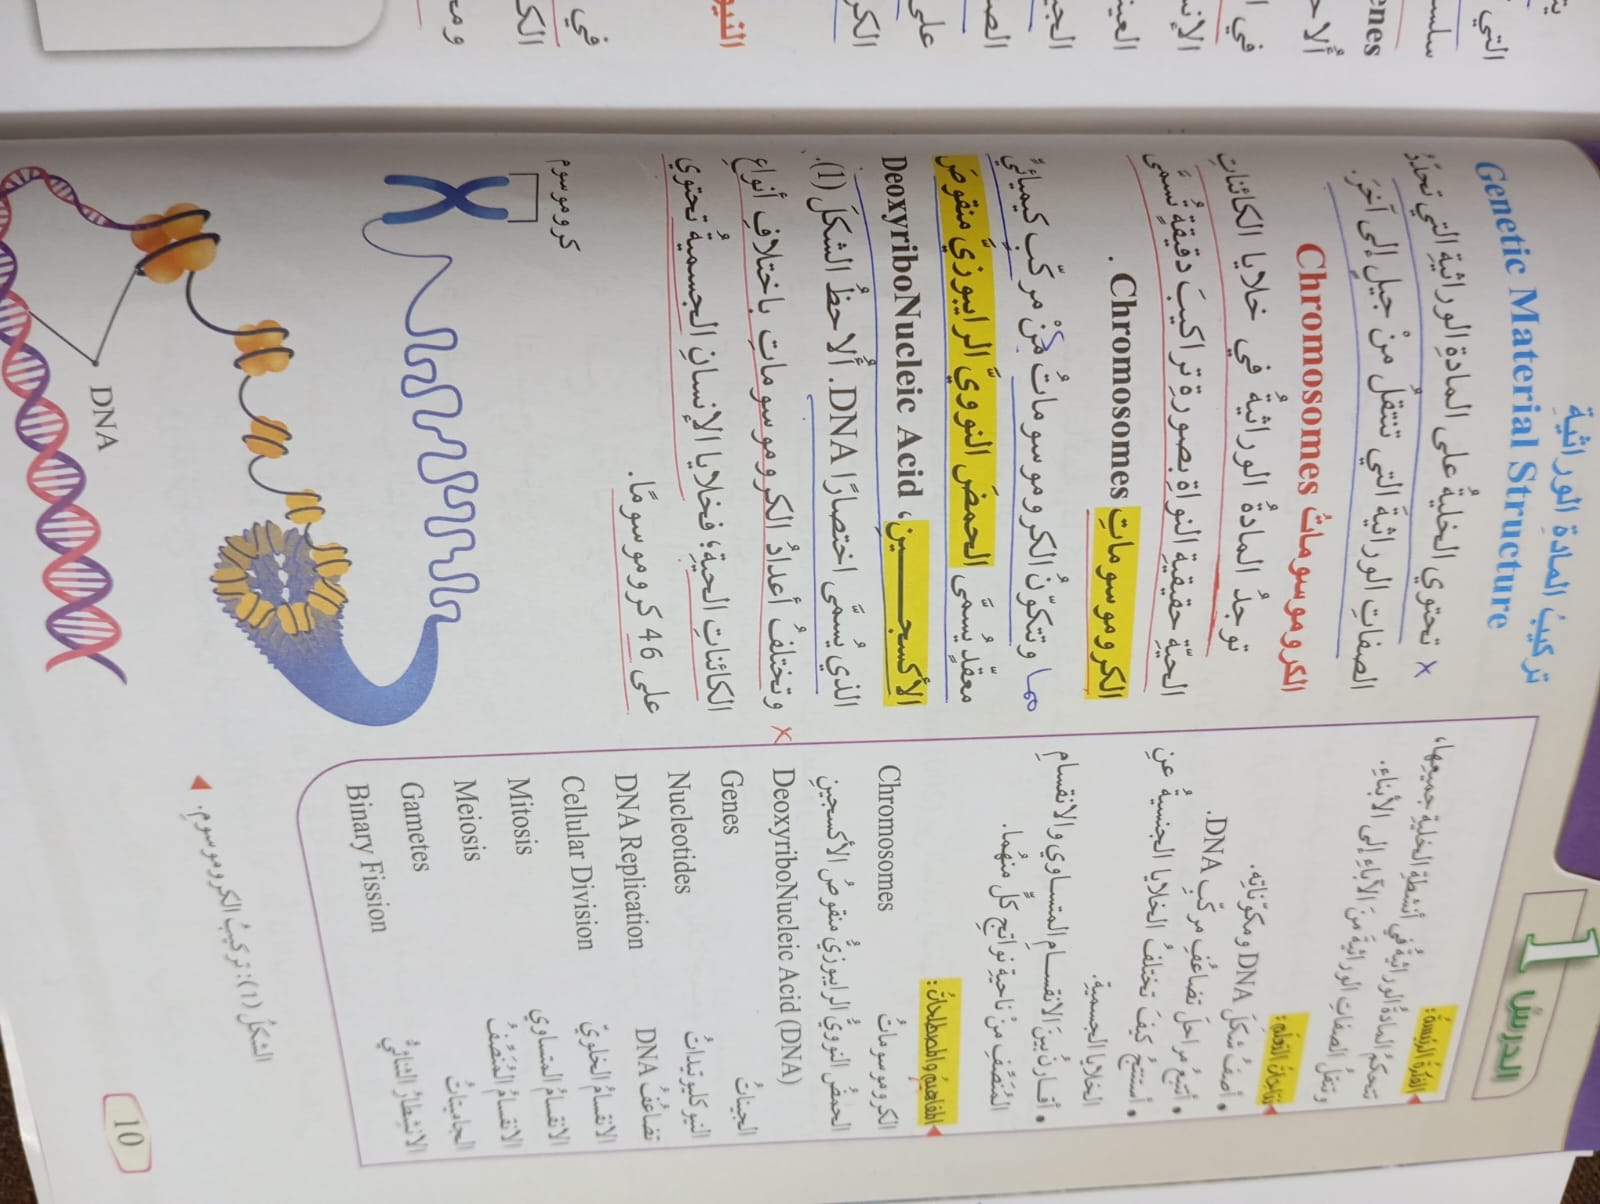 الدرسُ 1
تركيبُ المادةِ الوراثيةِ
Genetic Material Structure
x تحتوي الخليةُ على المادةِ الوراثيةِ التي تحدّدُ
الصفاتِ الوراثيةَ التي تنتقلُ منْ جيلٍ إلى آخرَ.
الكروموسوماتُ Chromosomes
توجدُ المادةُ الوراثيةُ في خلايا الكائناتِ
الحيّةِ حقيقيةِ النواةِ بصورةِ تراكيبَ دقيقةٍ تُسمّى
الكروموسوماتِ Chromosomes .
وتتكوّنُ الكروموسوماتُ منْ مركّبٍ كيميائيٍّ
معقّدٍ يُسمَّى الحمضَ النوويَّ الرايبوزيَّ منقوصَ
الأكسجينِ، DeoxyriboNucleic Acid
الذي يُسمَّى اختصارًا DNA. أُلاحظُ الشكلَ (1).
x وتختلفُ أعدادُ الكروموسوماتِ باختلافِ أنواعِ
الكائناتِ الحيةِ؛ فخلايا الإنسانِ الجسميةُ تحتوي
على 46 كروموسومًا.
كروموسوم
DNA
الفكرةُ الرئيسةُ:
تتحكمُ المادةُ الوراثيةُ في أنشطةِ الخليةِ جميعِها،
وتنقلُ الصفاتِ الوراثيةَ منَ الآباءِ إلى الأبناءِ.
نتاجاتُ التعلّمِ:
• أصفُ شكلَ DNA ومكوّناتِه.
• أتتبعُ مراحلَ تضاعُفِ مركّبِ DNA.
• أستنتجُ كيفَ تختلفُ الخلايا الجنسيةُ عنِ
الخلايا الجسميةِ.
• أقارنُ بينَ الانقسامِ المتساوي والانقسامِ
المُنصِّفِ منْ ناحيةِ نواتجِ كلٍّ منهُما.
المفاهيمُ والمصطلحاتُ:
الكروموسوماتُ Chromosomes
الحمضُ النوويُّ الرايبوزيُّ منقوصُ الأكسجينِ
DeoxyriboNucleic Acid (DNA)
الجيناتُ Genes
النيوكليوتيداتُ Nucleotides
تضاعُفُ DNA DNA Replication
الانقسامُ الخلويّ Cellular Division
الانقسامُ المتساوي Mitosis
الانقسامُ المُنَصِّفُ Meiosis
الجاميتاتُ Gametes
الانشطارُ الثنائيُّ Binary Fission
الشكلُ (1): تركيبُ الكروموسومِ.
10